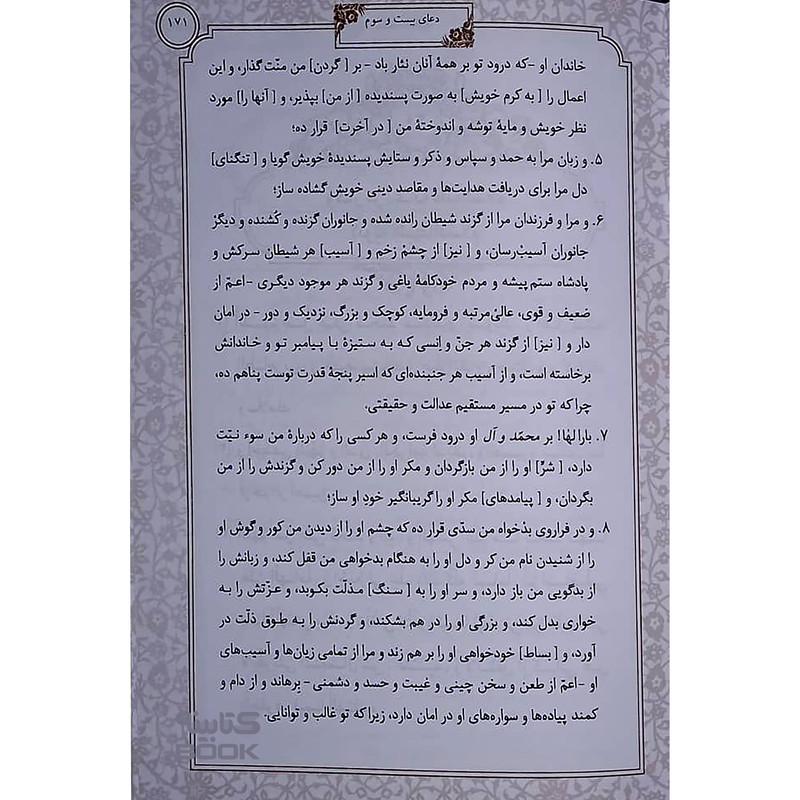 ۱۷۱
دعای بیست و سوم
خاندان او -که درود تو بر همهٔ آنان نثار باد- بر [ گردن] من منّت گذار، و این
اعمال را [ به کرم خویش] به صورت پسندیده [ از من] بپذیر، و [ آنها را] مورد
نظر خویش و مایهٔ توشه و اندوختهٔ من [ در آخرت] قرار ده؛
۵. و زبان مرا به حمد و سپاس و ذکر و ستایش پسندیدهٔ خویش گویا و [ تنگنای]
دل مرا برای دریافت هدایت‌ها و مقاصد دینی خویش گشاده ساز؛
۶. و مرا و فرزندان مرا از گزند شیطان رانده شده و جانوران گزنده و کُشنده و دیگر
جانوران آسیب‌رسان، و [ نیز] از چشمْ زخم و [ آسیب] هر شیطان سرکش و
پادشاه ستم پیشه و مردم خودکامهٔ یاغی و گزند هر موجود دیگری -اعمّ از
ضعیف و قوی، عالیْ‌مرتبه و فرومایه، کوچک و بزرگ، نزدیک و دور- در امان
دار و [ نیز] از گزند هر جنّ و اِنسی که به ستیزهٔ با پیامبر تو و خاندانش
برخاسته است، و از آسیب هر جنبنده‌ای که اسیر پنجهٔ قدرت توست پناهم ده،
چرا که تو در مسیر مستقیم عدالت و حقیقتی.
۷. بارالها! بر محمّد و آل او درود فرست، و هر کسی را که دربارهٔ من سوء نیّت
دارد، [ شرّ] او را از من بازگردان و مکر او را از من دور کن و گزندش را از من
بگردان، و [ پیامدهای] مکر او را گریبانگیر خودِ او ساز؛
۸. و در فراروی بدخواه من سدّی قرار ده که چشم او را از دیدن من کور و گوش او
را از شنیدن نام من کر و دل او را به هنگام بدخواهی من قفل کند، و زبانش را
از بدگویی من باز دارد، و سر او را به [ سنگ] مذلّت بکوبد، و عزّتش را به
خواری بدل کند، و بزرگی او را در هم بشکند، و گردنش را به طوق ذلّت در
آورد، و [ بساط] خودخواهی او را بر هم زند و مرا از تمامی زیان‌ها و آسیب‌های
او -اعمّ از طعن و سخن چینی و غیبت و حسد و دشمنی- بِرهاند و از دام و
کمند پیاده‌ها و سواره‌های او در امان دارد، زیرا که تو غالب و توانایی.
BOOK